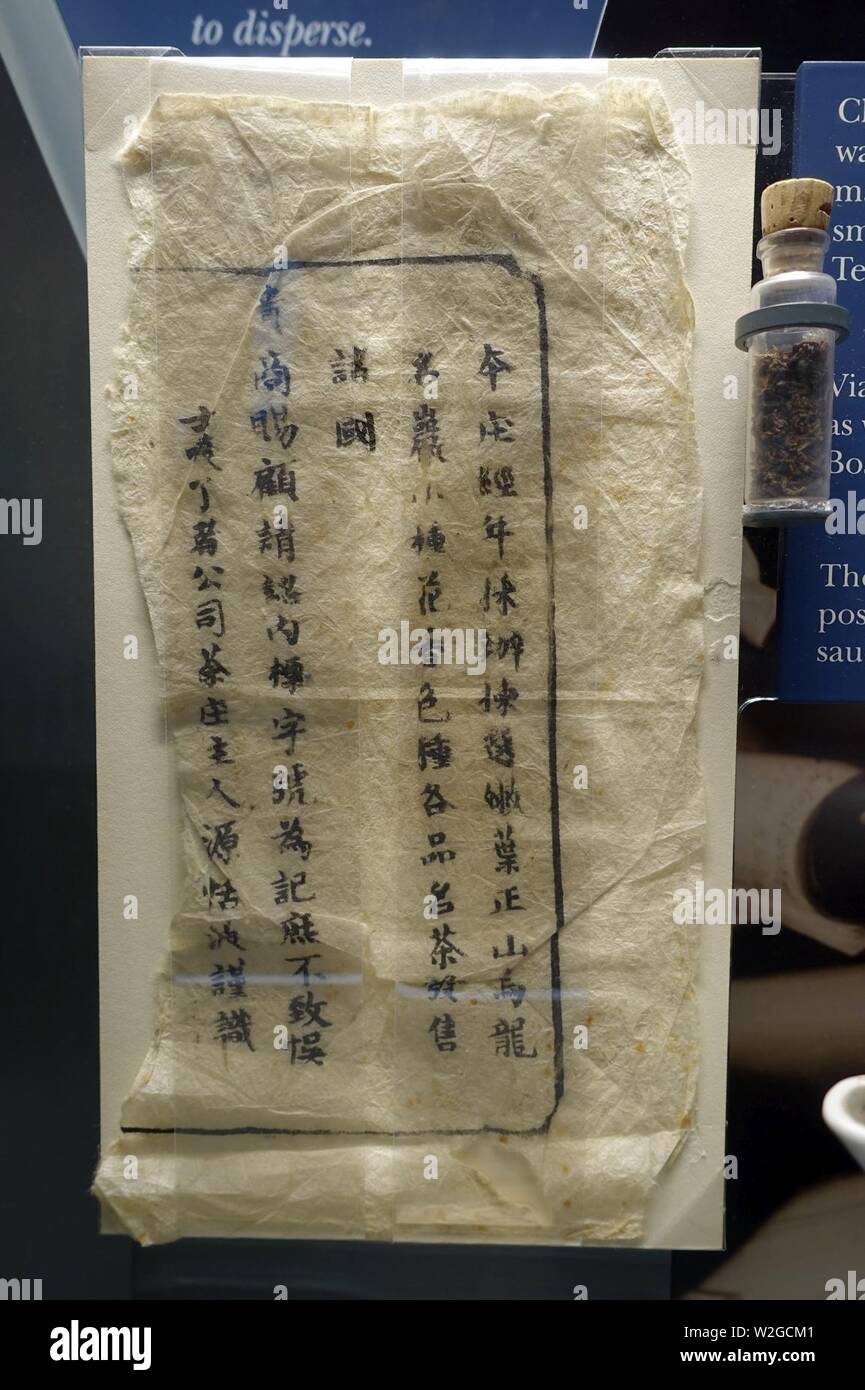 to disperse.
本庄經年採辦揀選嫩葉正山烏龍
名巖小種花香色種各品名茶發售
諸國
商賜顧請認內標字號為記庶不致悞
公司茶庄主人源 謹識
Ch
wa
ma
sm
Te
Via
as w
Bos
The
poss
sau
alamy
Image ID: W2GCM1
www.alamy.com